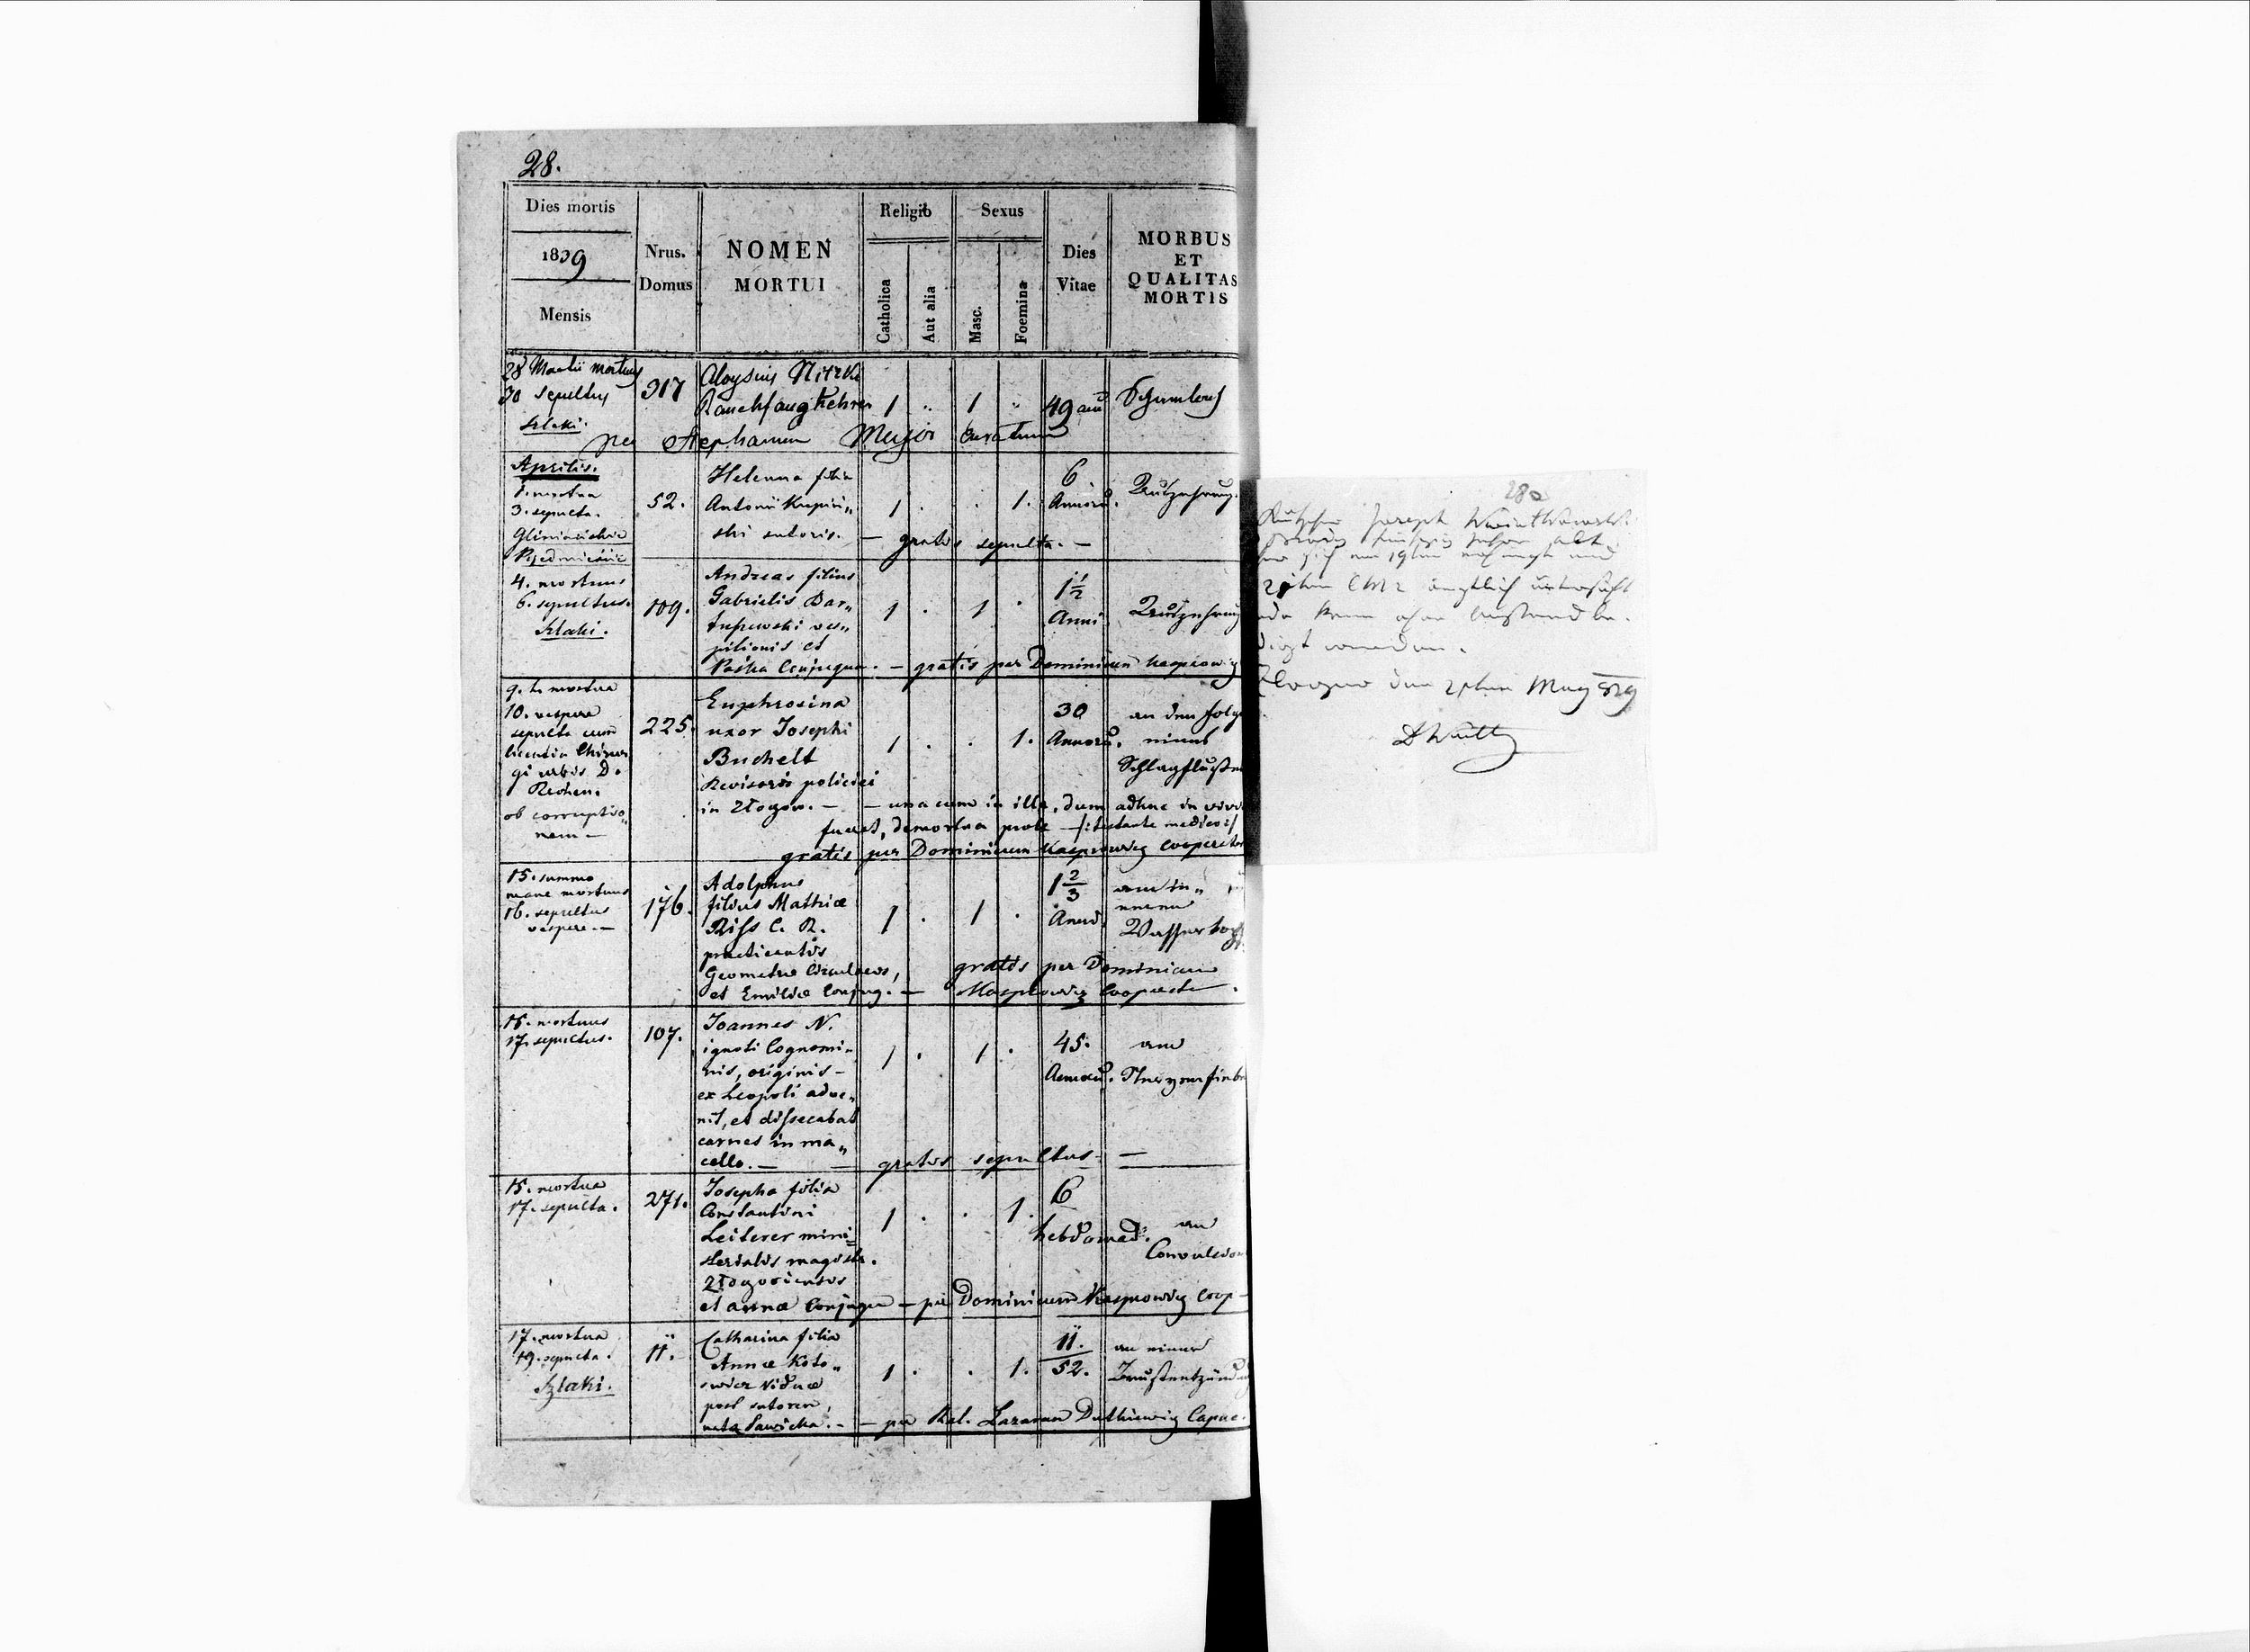 28.
Dies mortis
1839
Mensis
Nrus.
Domus
NOMEN
MORTUI
Religio
Catholica
Aut alia
Sexus
Masc.
Foemina
Dies
Vitae
MORBUS
ET
QUALITAS
MORTIS
28 Martii mortuus
30 sepultus
Szlaki.
317
Aloysius Nitzki
Rauchfangkehrer
1 1
49 ann
per Stephanum Major curatum
Aprilis.
1. mortua
3. sepulta.
52.
Helenna filia
Antonii Krupin„
ski sutoris.
1 . . 1.
6
Annoru.
Auszehrung.
— gratis sepulta. —
4. mortuus
6. sepultus.
Szlaki.
109.
Andreas filius
Gabrielis Bar„
tuszewski ves„
pilionis et
Conjugum.
1 . 1 .
1 1/2
Anni
Auszehrung
— gratis per Dominicum Kasprowicz
9. h. mortua
10. vespere
sepulta cum
licentia Chirur
gi urbis D.
ob corruptio„
nem —
225.
Euphrosina
uxor Josephi
Buchelt
Revisoris policiei
in Złozow. —
1 . . 1.
30
Annoru.
an den Folgen
eines
Schlagflußes
— una cum in illa, dum adhuc in vivis
fuerat, demortua prole —/: testante medico :/
gratis per Dominicum Kasprowicz Cooperator
15. summo
mane mortuus
16. sepultus
vespere. —
176.
Adolphus
filius Mathiae
Riss C. R.
practicantis
Geometrae Circulares,
et Emiliae Conjug. —
1 . 1 .
1 2/3
Annoru.
am in„
neren
Wasserkopf
gratis per Dominicum
Kasprowicz Cooperator.
15. mortuus
17. sepultus.
107.
Joannes N.
ignoti Cognomi„
nis, originis —
ex Leopoli adve„
nit, et dissecabat
carnes in ma„
cello. —
1 . 1 .
45.
Annoru.
am
Nervenfieber
— gratis sepultus —
15. mortua
17. sepulta.
271.
Josepha filia
Constantini
Leiterer mini„
sterialis magistr.
Złozoviensis
et Annae Conjugum
1 . . 1.
6
hebdomad.
an
Convulsion
— per Dominicum Kasprowicz Coop —
17. mortua
19. sepulta.
Szlaki.
11.
Catharina filia
Annae Koto„
wicz viduae
post sutorem,
nata Sawicka. —
1 . . 1.
11.
52.
an einer
Brustentzündung
— per Rel. Lazarum Dutkiewicz Capuc.
28a
Kutscher Joseph
fünfzig Jahre alt
am 19ten
ärztlich untersucht
kann ohne Anstand be„
digt werden.
den May 839